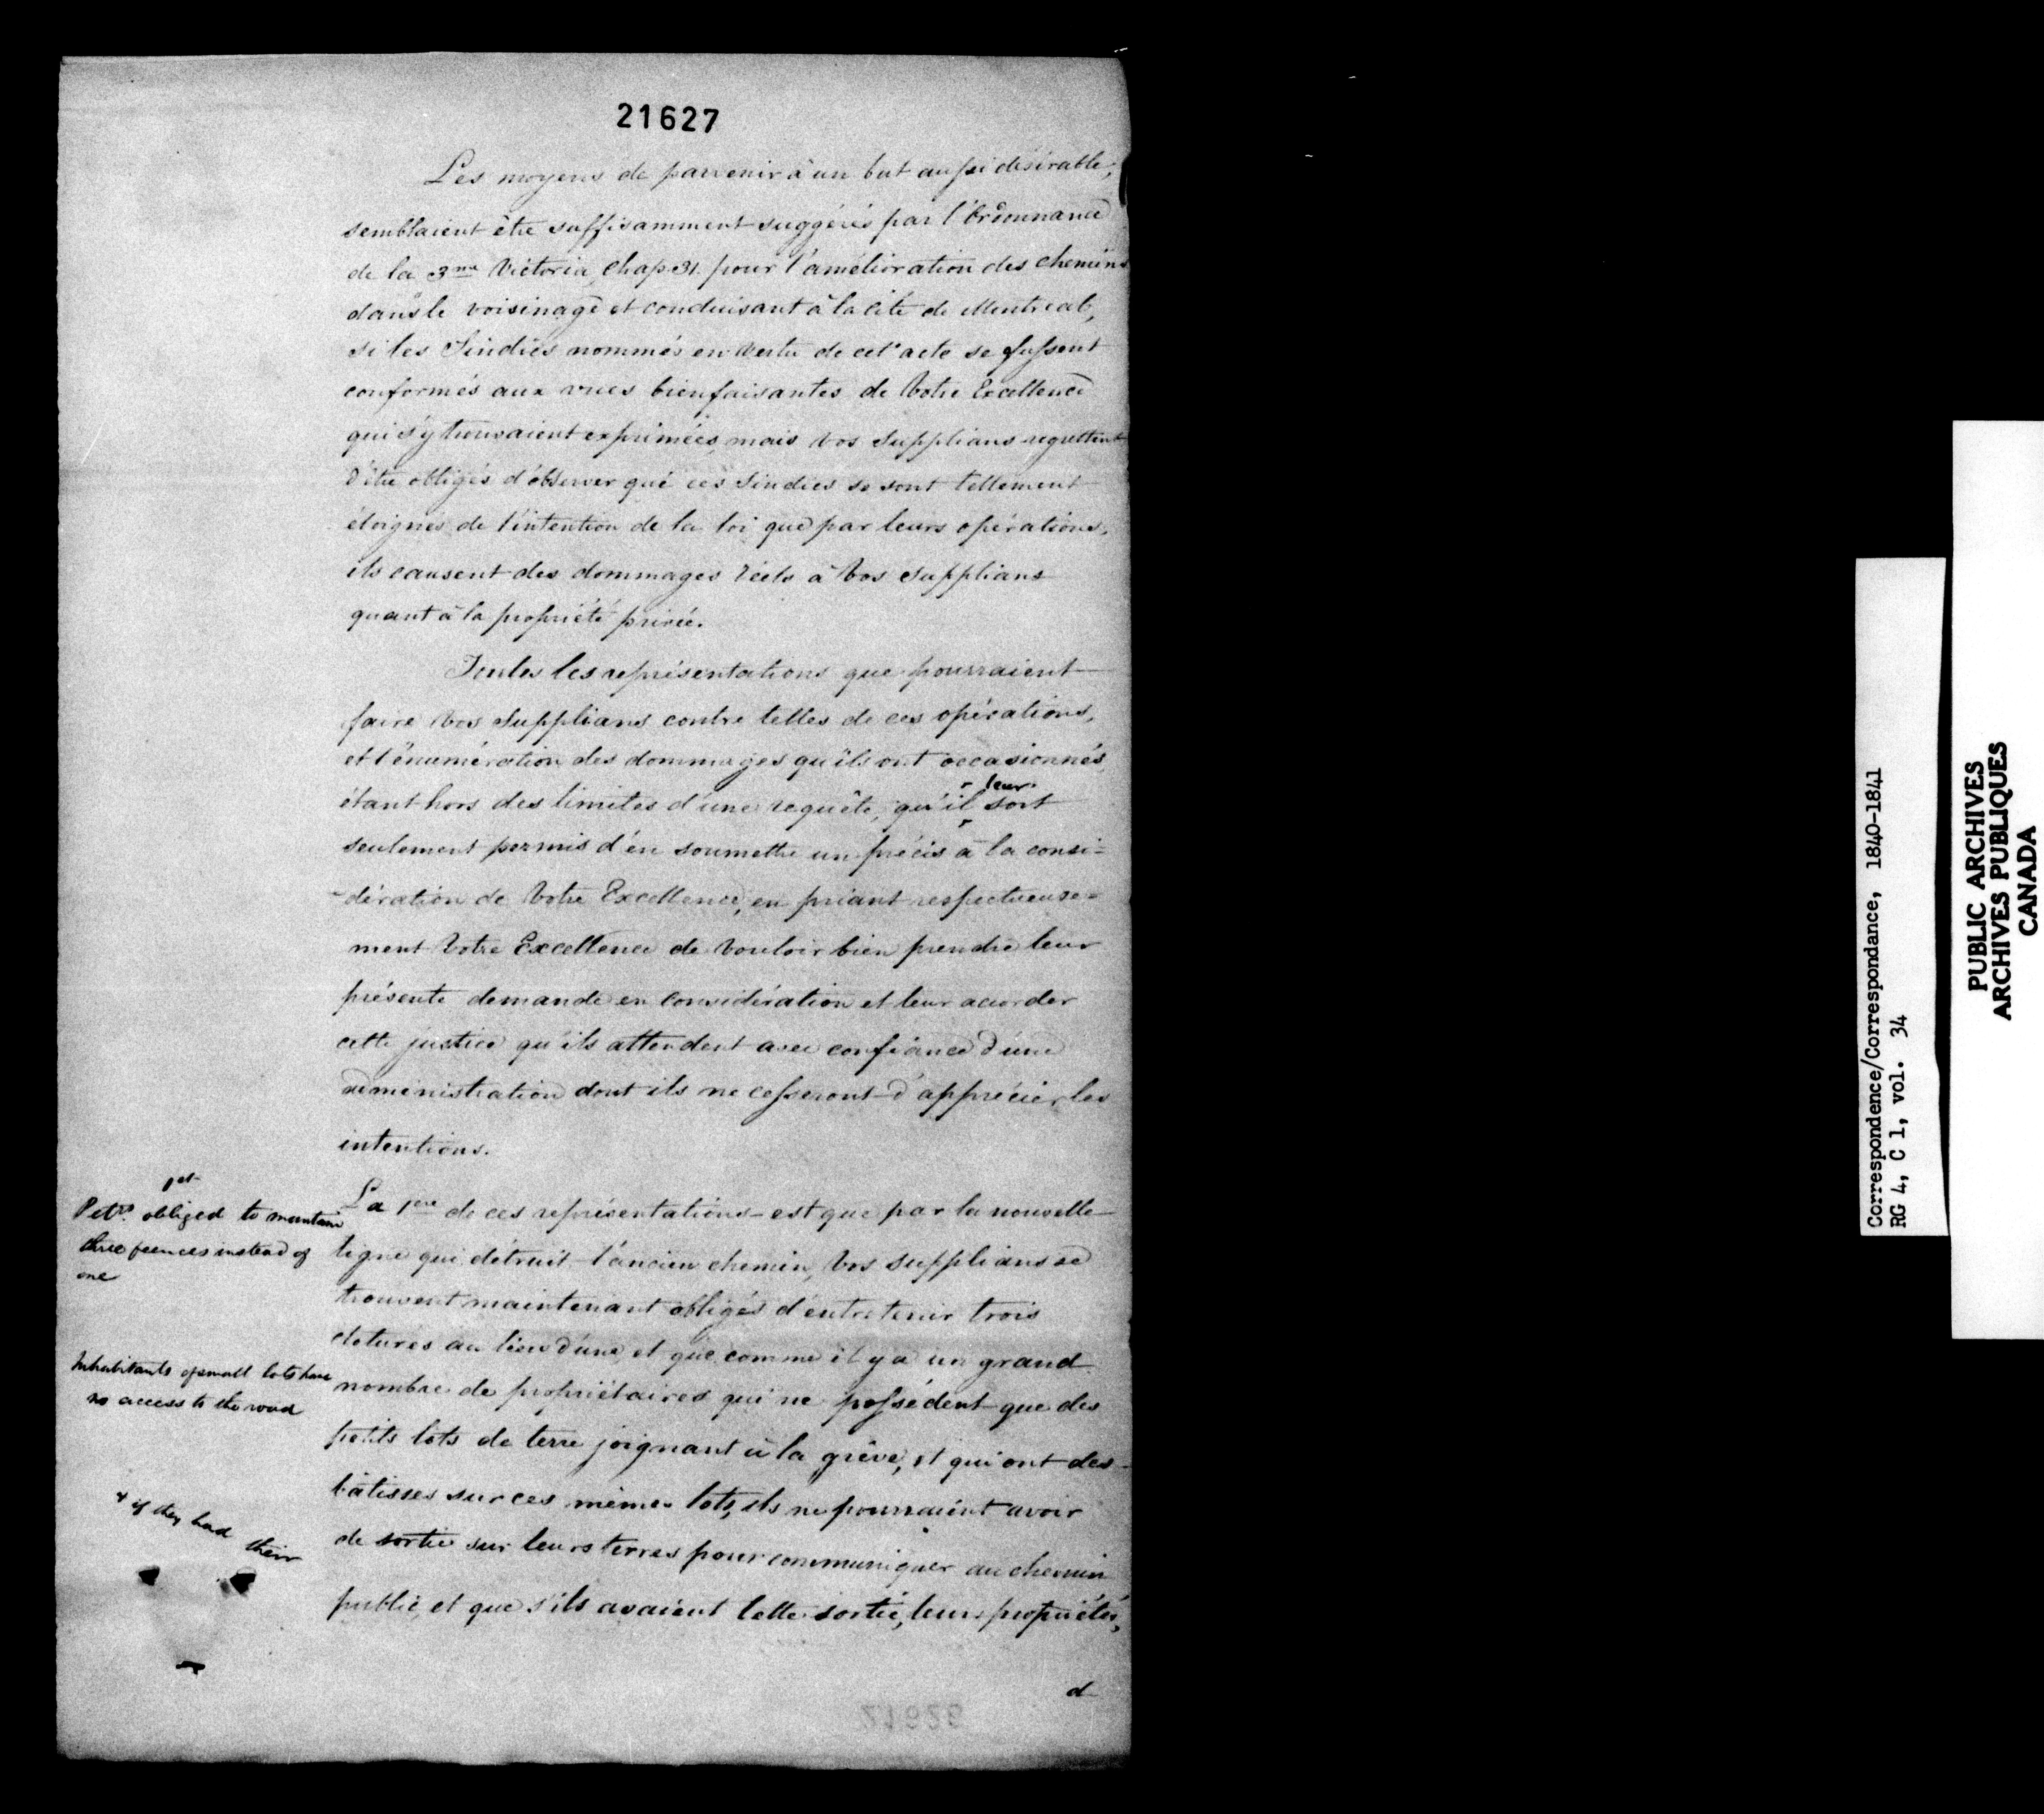 21627
Les moyens de parvenir à un but aussi désirable,
semblaient être suffisamment suggérés par l'Ordonnance
de la 3me Victoria, Chap 31. pour l'amélioration des chemins
dans le voisinage et conduisant à la cité de Montreal,
si les Sindics nommés en vertu de cet acte se fussent
conformés aux vues bienfaisantes de Votre Excellence
qui s'y trouvaient exprimées, mais vos Supplians regrettent
d'être obligés d'observer que ces Sindics se sont tellement
éloignés de l'intention de la loi que par leurs opérations,
ils causent des dommages réels à Vos Supplians
quant à la propriété privée.
Toutes les représentations que pourraient
faire Vos Supplians contre telles de ces opérations,
et l'énumération des dommages qu'ils ont occasionnés,
étant hors des limites d'une requête, qu'il leur soit
seulement permis d'en soumettre un précis à la consi=
-dération de Votre Excellence, en priant respectueuse=
ment Votre Excellence de Vouloir bien prendre leur
présente demande en considération et leur accorder
cette justice qu'ils attendent avec confiance d'une
administration dont ils ne cesseront d'apprécier les
intentions.
1st
Petrs. obliged to maintain
three fences instead of
one
La 1ere de ces représentations est que par la nouvelle
ligne qui détruit l'ancien chemin, Vos Supplians se
trouvent maintenant obligés d'entretenir trois
clotures au lieu d'une, et que, comme il y a un grand
Inhabitants of small lots have
no access to the road
nombre de propriétaires qui ne possédent que des
petits lots de terre joignant à la grève, et qui ont des
bâtisses sur ces mêmes lots, ils ne pourraient avoir
& if they had their
de sortie sur leurs terres pour communiquer au chemin
public, et que s'ils avaient cette sortie, leurs propriétés,
d
21626
Correspondence/Correspondance, 1840-1841
RG 4, C 1, vol. 34
PUBLIC ARCHIVES
ARCHIVES PUBLIQUES
CANADA